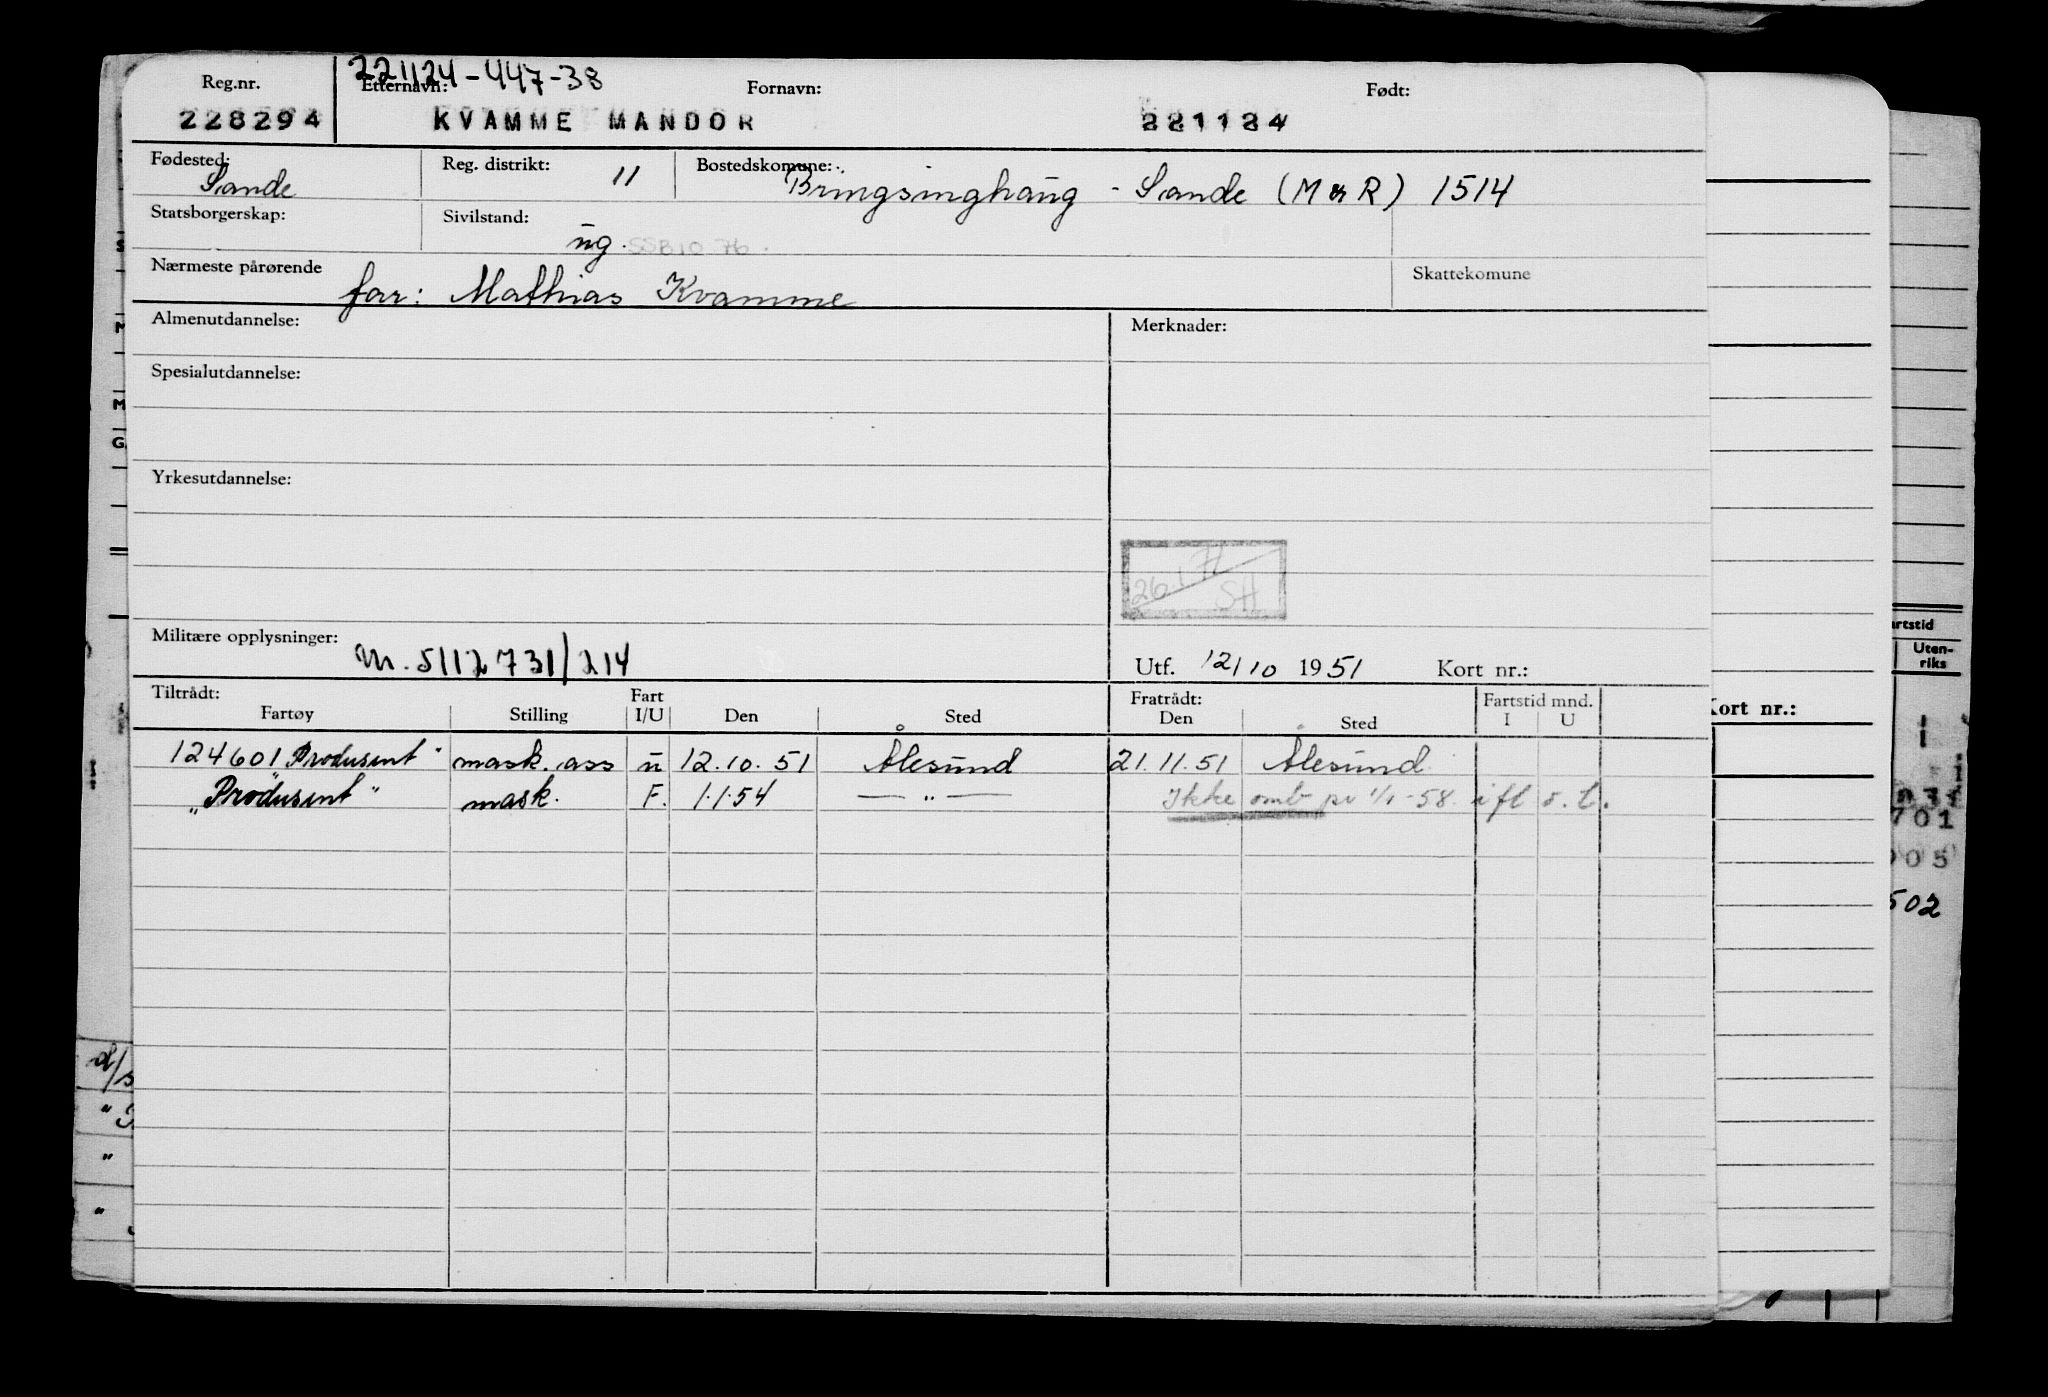 221124-447-38
Reg.nr. Etternavn: Fornavn: Født:
228294 KVAMME MANDOR 221124
Fødested: Reg. distrikt: 11 Bostedskomune:
Sande Bringsinghaug - Sande (M & R) 1514
Statsborgerskap: Sivilstand:
ug. SSB 10 76.
Nærmeste pårørende Skattekomune
far: Mathias Kvamme
Almenutdannelse: Merknader:
Spesialutdannelse:
Yrkesutdannelse:
26.1 71
SH
Militære opplysninger:
M. 5112731/214
Utf. 12/10 1951 Kort nr.:
Tiltrådt: Fart Fratrådt: Fartstid mnd.
Fartøy Stilling I/U Den Sted Den Sted I U
124601 "Produsent" mask. ass u 12.10.51 Ålesund 21.11.51 Ålesund
"Produsent" mask. F. 1.1.54 — " — Ikke omb pr 1/1-58. ifl s.l.
Kort nr.:
artstid
Uten-
riks
701
005
502
d/s